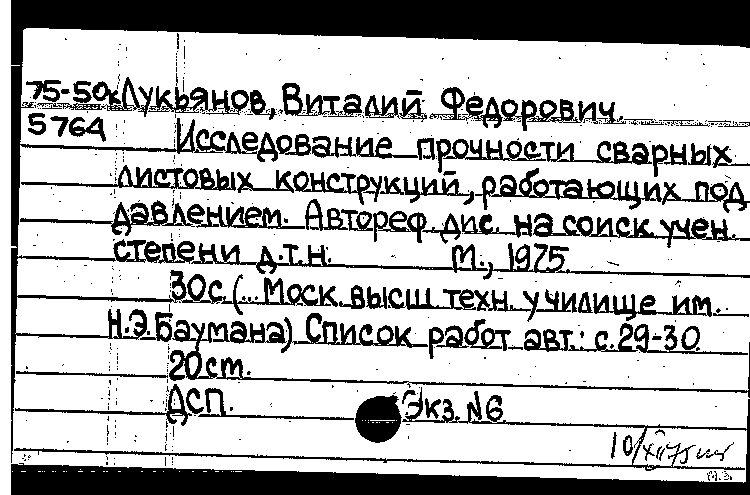 75-50к Лукьянов, Виталий Федорович.
5764 Исследование прочности сварных
листовых конструкций, работающих под
давлением. Автореф. дис. на соиск. учен.
степени д.т.н. М., 1975.
30с. (... Моск. высш. техн. училище им.
Н.Э.Баумана) Список работ авт.: с.29-30.
20см.
ДСП. Экз. №6
10/XII 75
М.З.